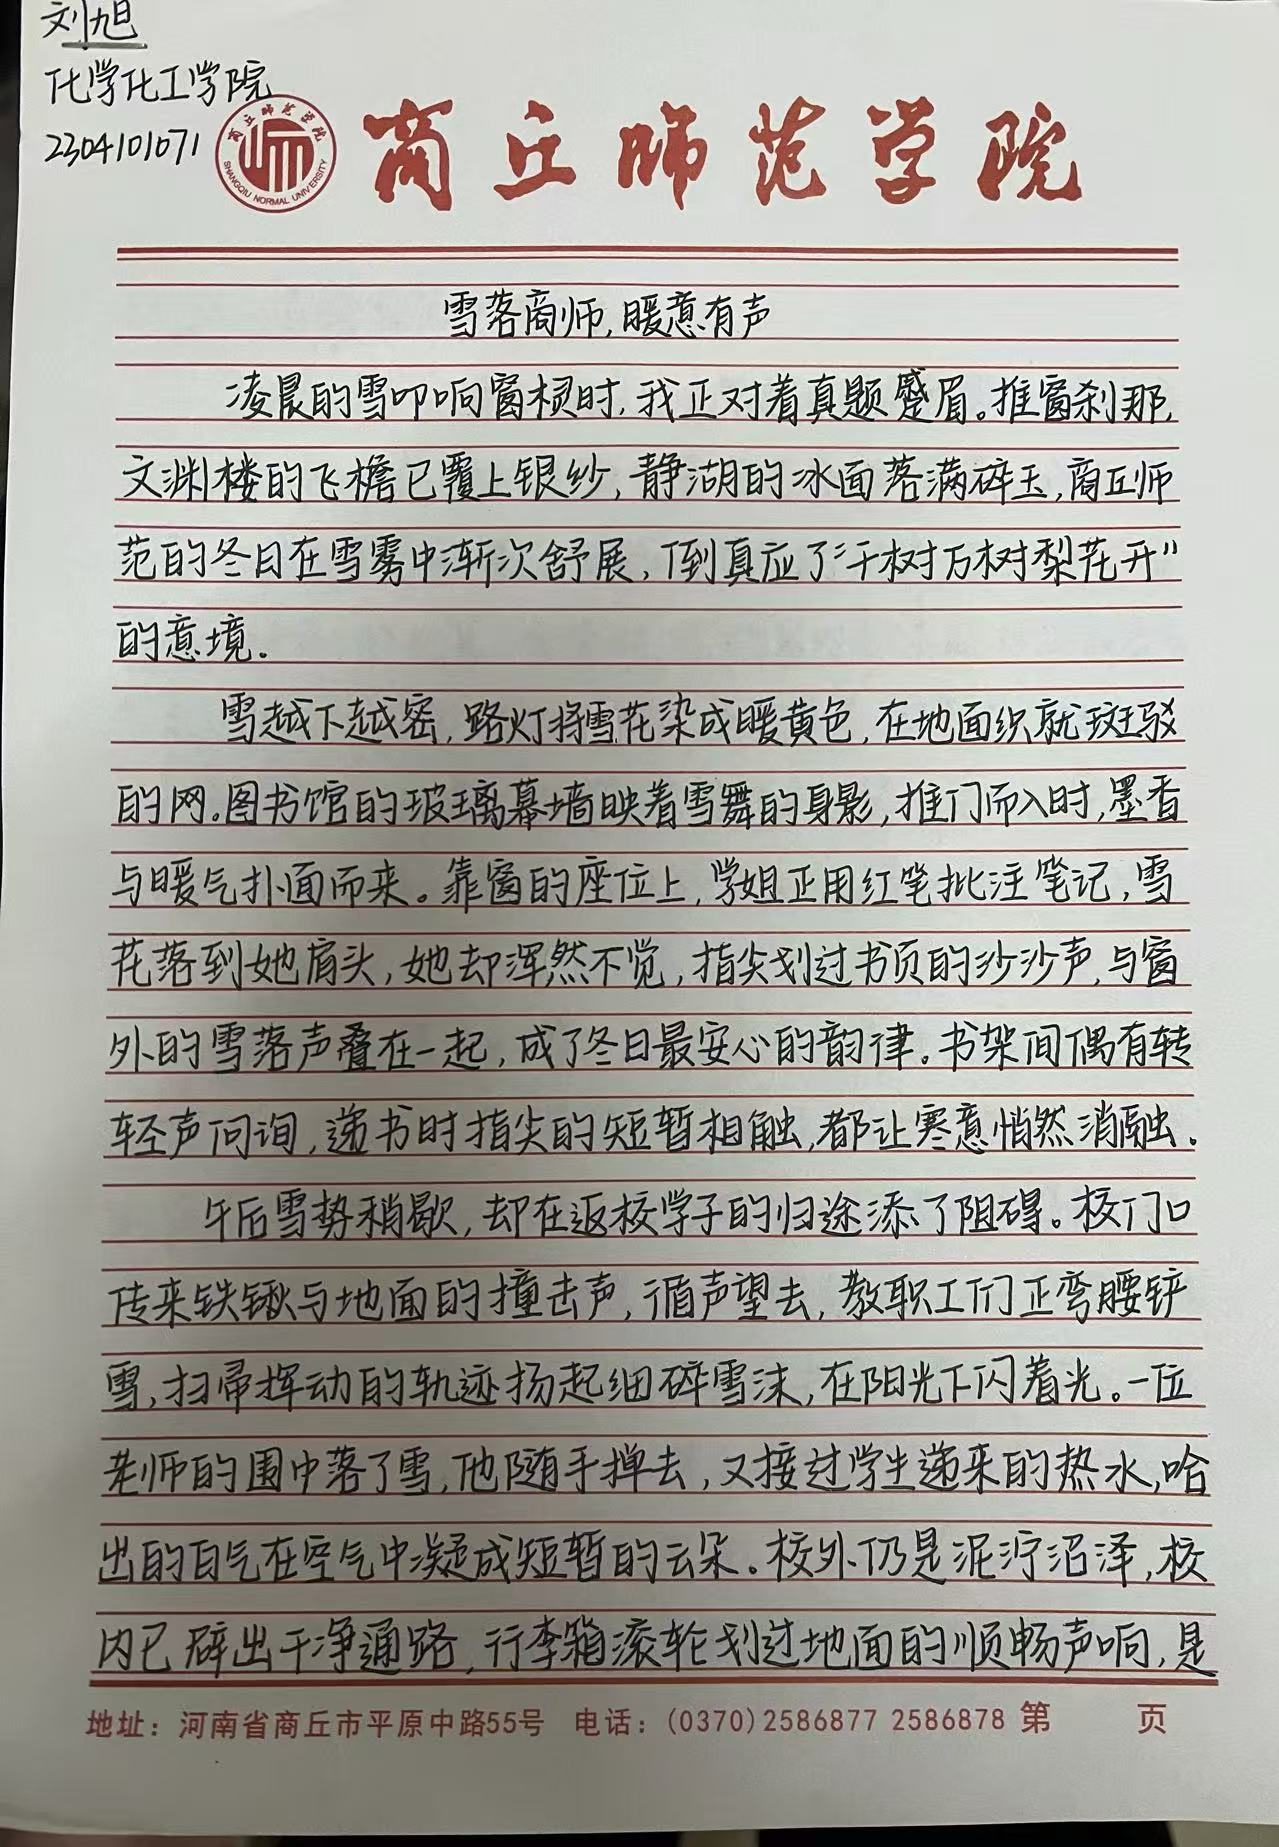 刘旭
化学化工学院
2304101071
商丘师范学院
SHANGQIU NORMAL UNIVERSITY
商丘师范学院
雪落商师,暖意有声
凌晨的雪叩响窗棂时,我正对着真题蹙眉。推窗刹那,
文渊楼的飞檐已覆上银纱,静湖的冰面落满碎玉,商丘师
范的冬日在雪雾中渐次舒展,倒真应了“千树万树梨花开”
的意境。
雪越下越密,路灯将雪花染成暖黄色,在地面织就斑驳
的网。图书馆的玻璃幕墙映着雪舞的身影,推门而入时,墨香
与暖气扑面而来。靠窗的座位上,学姐正用红笔批注笔记,雪
花落到她肩头,她却浑然不觉,指尖划过书页的沙沙声,与窗
外的雪落声叠在一起,成了冬日最安心的韵律。书架间偶有转
轻声问询,递书时指尖的短暂相触,都让寒意悄然消融。
午后雪势稍歇,却在返校学子的归途添了阻碍。校门口
传来铁锹与地面的撞击声,循声望去,教职工们正弯腰铲
雪,扫帚挥动的轨迹扬起细碎雪沫,在阳光下闪着光。一位
老师的围巾落了雪,他随手掸去,又接过学生递来的热水,哈
出的白气在空气中凝成短暂的云朵。校外仍是泥泞沼泽,校
内已辟出干净通路,行李箱滚轮划过地面的顺畅声响,是
地址:河南省商丘市平原中路55号 电话:(0370)2586877 2586878 第 页